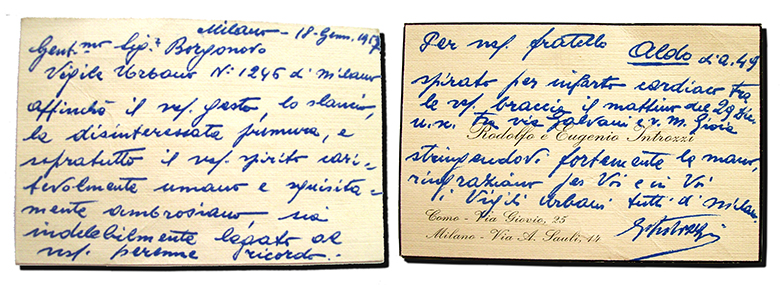 Milano - 18 - Genn. 1957
Gent.mo Sig.r Borgonovo
Vigile Urbano N° 1246 di Milano
affinchè il vs/ gesto, lo slancio,
la disinteressata premura, e
sopratutto il vs/ spirito cari-
tevolmente umano e squisita-
mente ambrosiano, sia
indelebilmente legato al
vs/ perenne ricordo.
Per ns/ fratello Aldo d'a. 49
spirato per infarto cardiaco tra
le vs/ braccia il mattino del 29 Dic.
u.s. tra via Galvani e v. M. Gioia
Rodolfo e Eugenio Introzzi
stringendovi fortemente la mano,
ringraziano per Voi e in Voi
i Vigili Urbani tutti di Milano.
Como - Via Giovio, 25
Milano - Via A. Sauli, 14